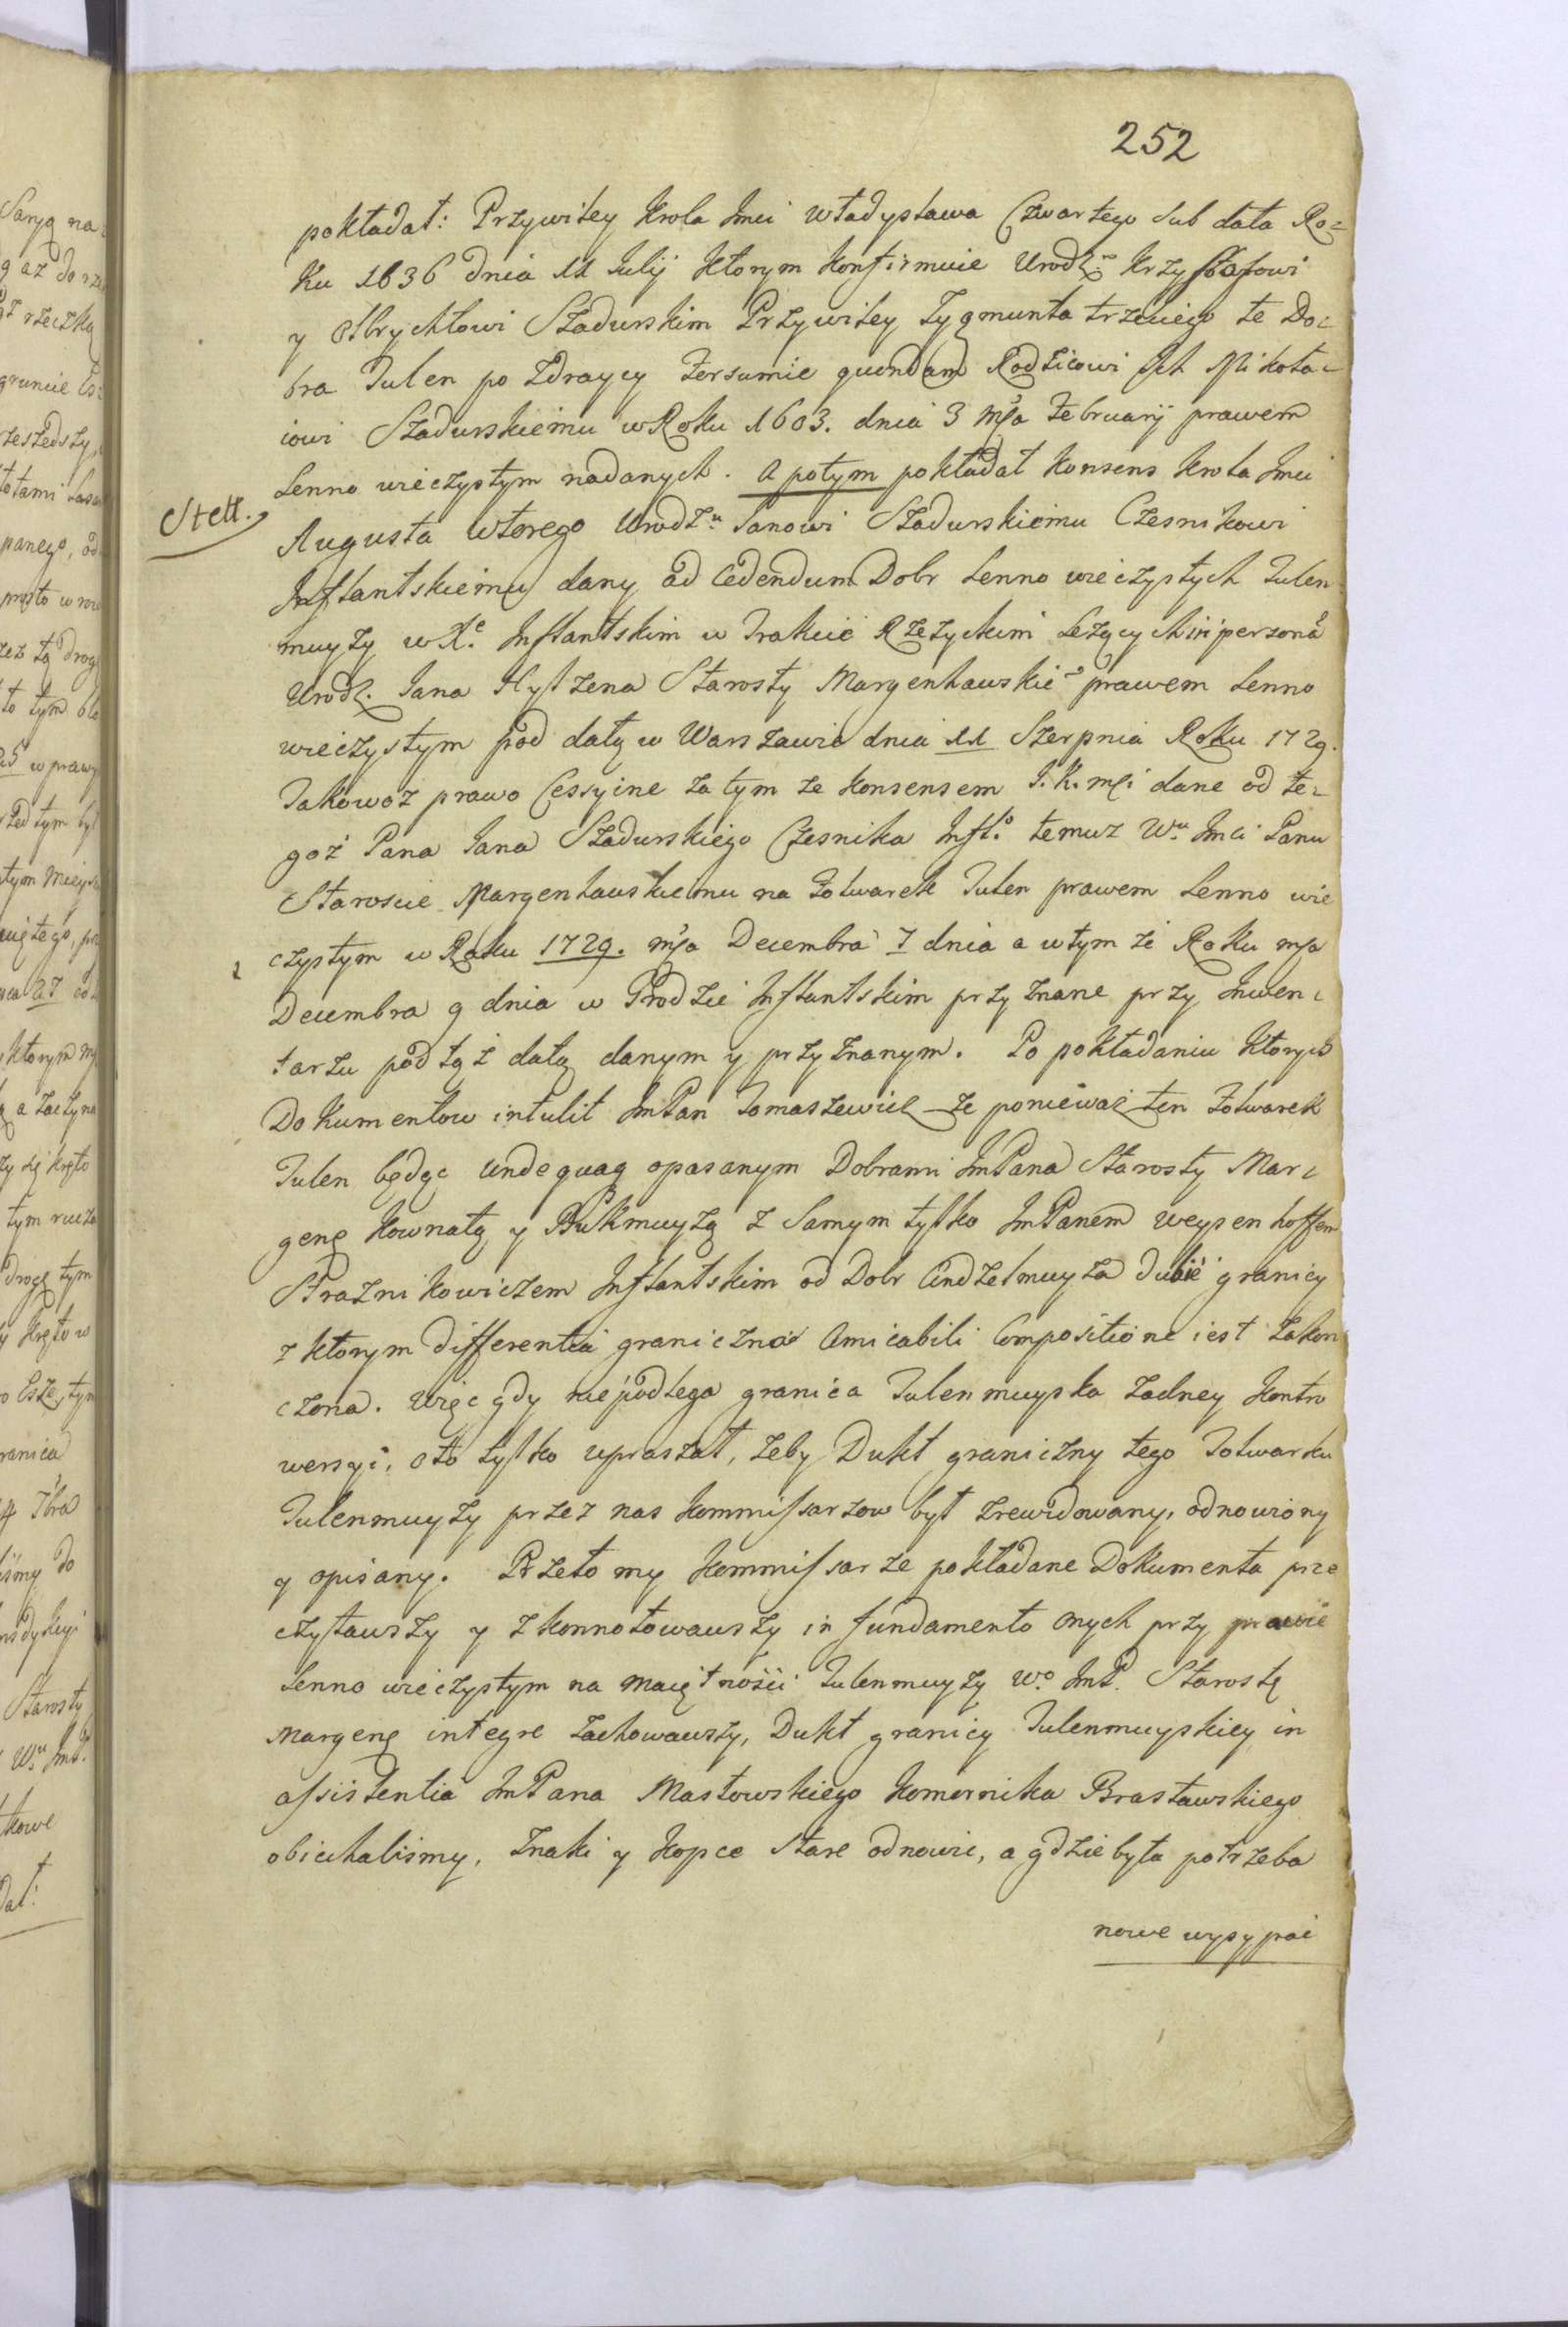 252
pokładał: Przywiley Krola Jmci Władysława Czwartego Sub data Ro=
ku 1636 dnia 11 Julij ktorym konfirmuie Urodz: Krzysztofowi
y Olbrychtowi Szadurskim Przywiley Zygmunta trzeciego te Do=
bra Julen po Zdraycy Fersumie quondam Rodzicowi Jch Mikoła=
iowi Szadurskiemu w Roku 1603. dnia 3 mſa Februarij prawem
Lenno wieczystym nadanych. A potym pokładał konsens krola Jmci
Stett.
Augusta wtorego Urodz.u Janowi Szadurskiemu Czesnikowi
Inflantskiemu dany ad cedendum Dobr Lenno wieczystych Julen
muyzy w X.e Inflantskim w Trakcie Rzezyckim Leżących in personã
Urodz. Jana Hylzena Starosty Margenhauskie° prawem Lenno
wieczystym pod datą w Warszawie dnia 11 Sierpnia Roku 1729.
Jakowoz prawo Cessyine za tym ze konsensem J. K. mści dane od te=
goż Pana Jana Szadurskiego Czesnika Infl.° temuz W.u Jmci Panu
Staroscie Margenhauskiemu na Folwarek Julen prawem Lenno wie
czystym w Roku 1729. mſa Decembra 7 dnia a w tym że Roku mſa
Decembra 9 dnia w Grodzie Inflantskim przyznane przy Inwen=
tarzu pod tąż datą danym y przyznanym. Po pokładaniu ktorych
Dokumentow intulit JmPan Tomaszewicz ze poniewaz ten Folwarek
Julen będąc undequaq opasanym Dobrami JmPana Starosty Mar=
geng Kownatą y Bukmuyzą z Samym tylko JmPanem Weysenhoffem
Straznikowiczem Inflantskim od Dobr Andzelmuyza dubie granicy
z ktorym differentia graniczna Amicabili Compositione iest zakon
czona. Więc gdy nie podlega granica Julenmuyska zadney kontro
wersyi, oto tylko upraszał, zeby Dukt graniczny tego Folwarku
Julenmuyzy przez nas kommiſsarzow był zrewidowany, odnowiony
y opisany. Przeto my Kommiſsarze pokładane Dokumenta prze
czytawszy y zkonnotowawszy in fundamento onych przy prawie
Lenno wieczystym na maiętności Julenmuyzy W.° JmP. Starostę
Margeng integre zachowawszy, Dukt granicy Julenmuyskiey in
aſsistentia JmPana Masłowskiego Komornika Brasławskiego
obiechalismy, Znaki y Kopce stare odnowić, a gdzie była potrzeba
nowe wysypać